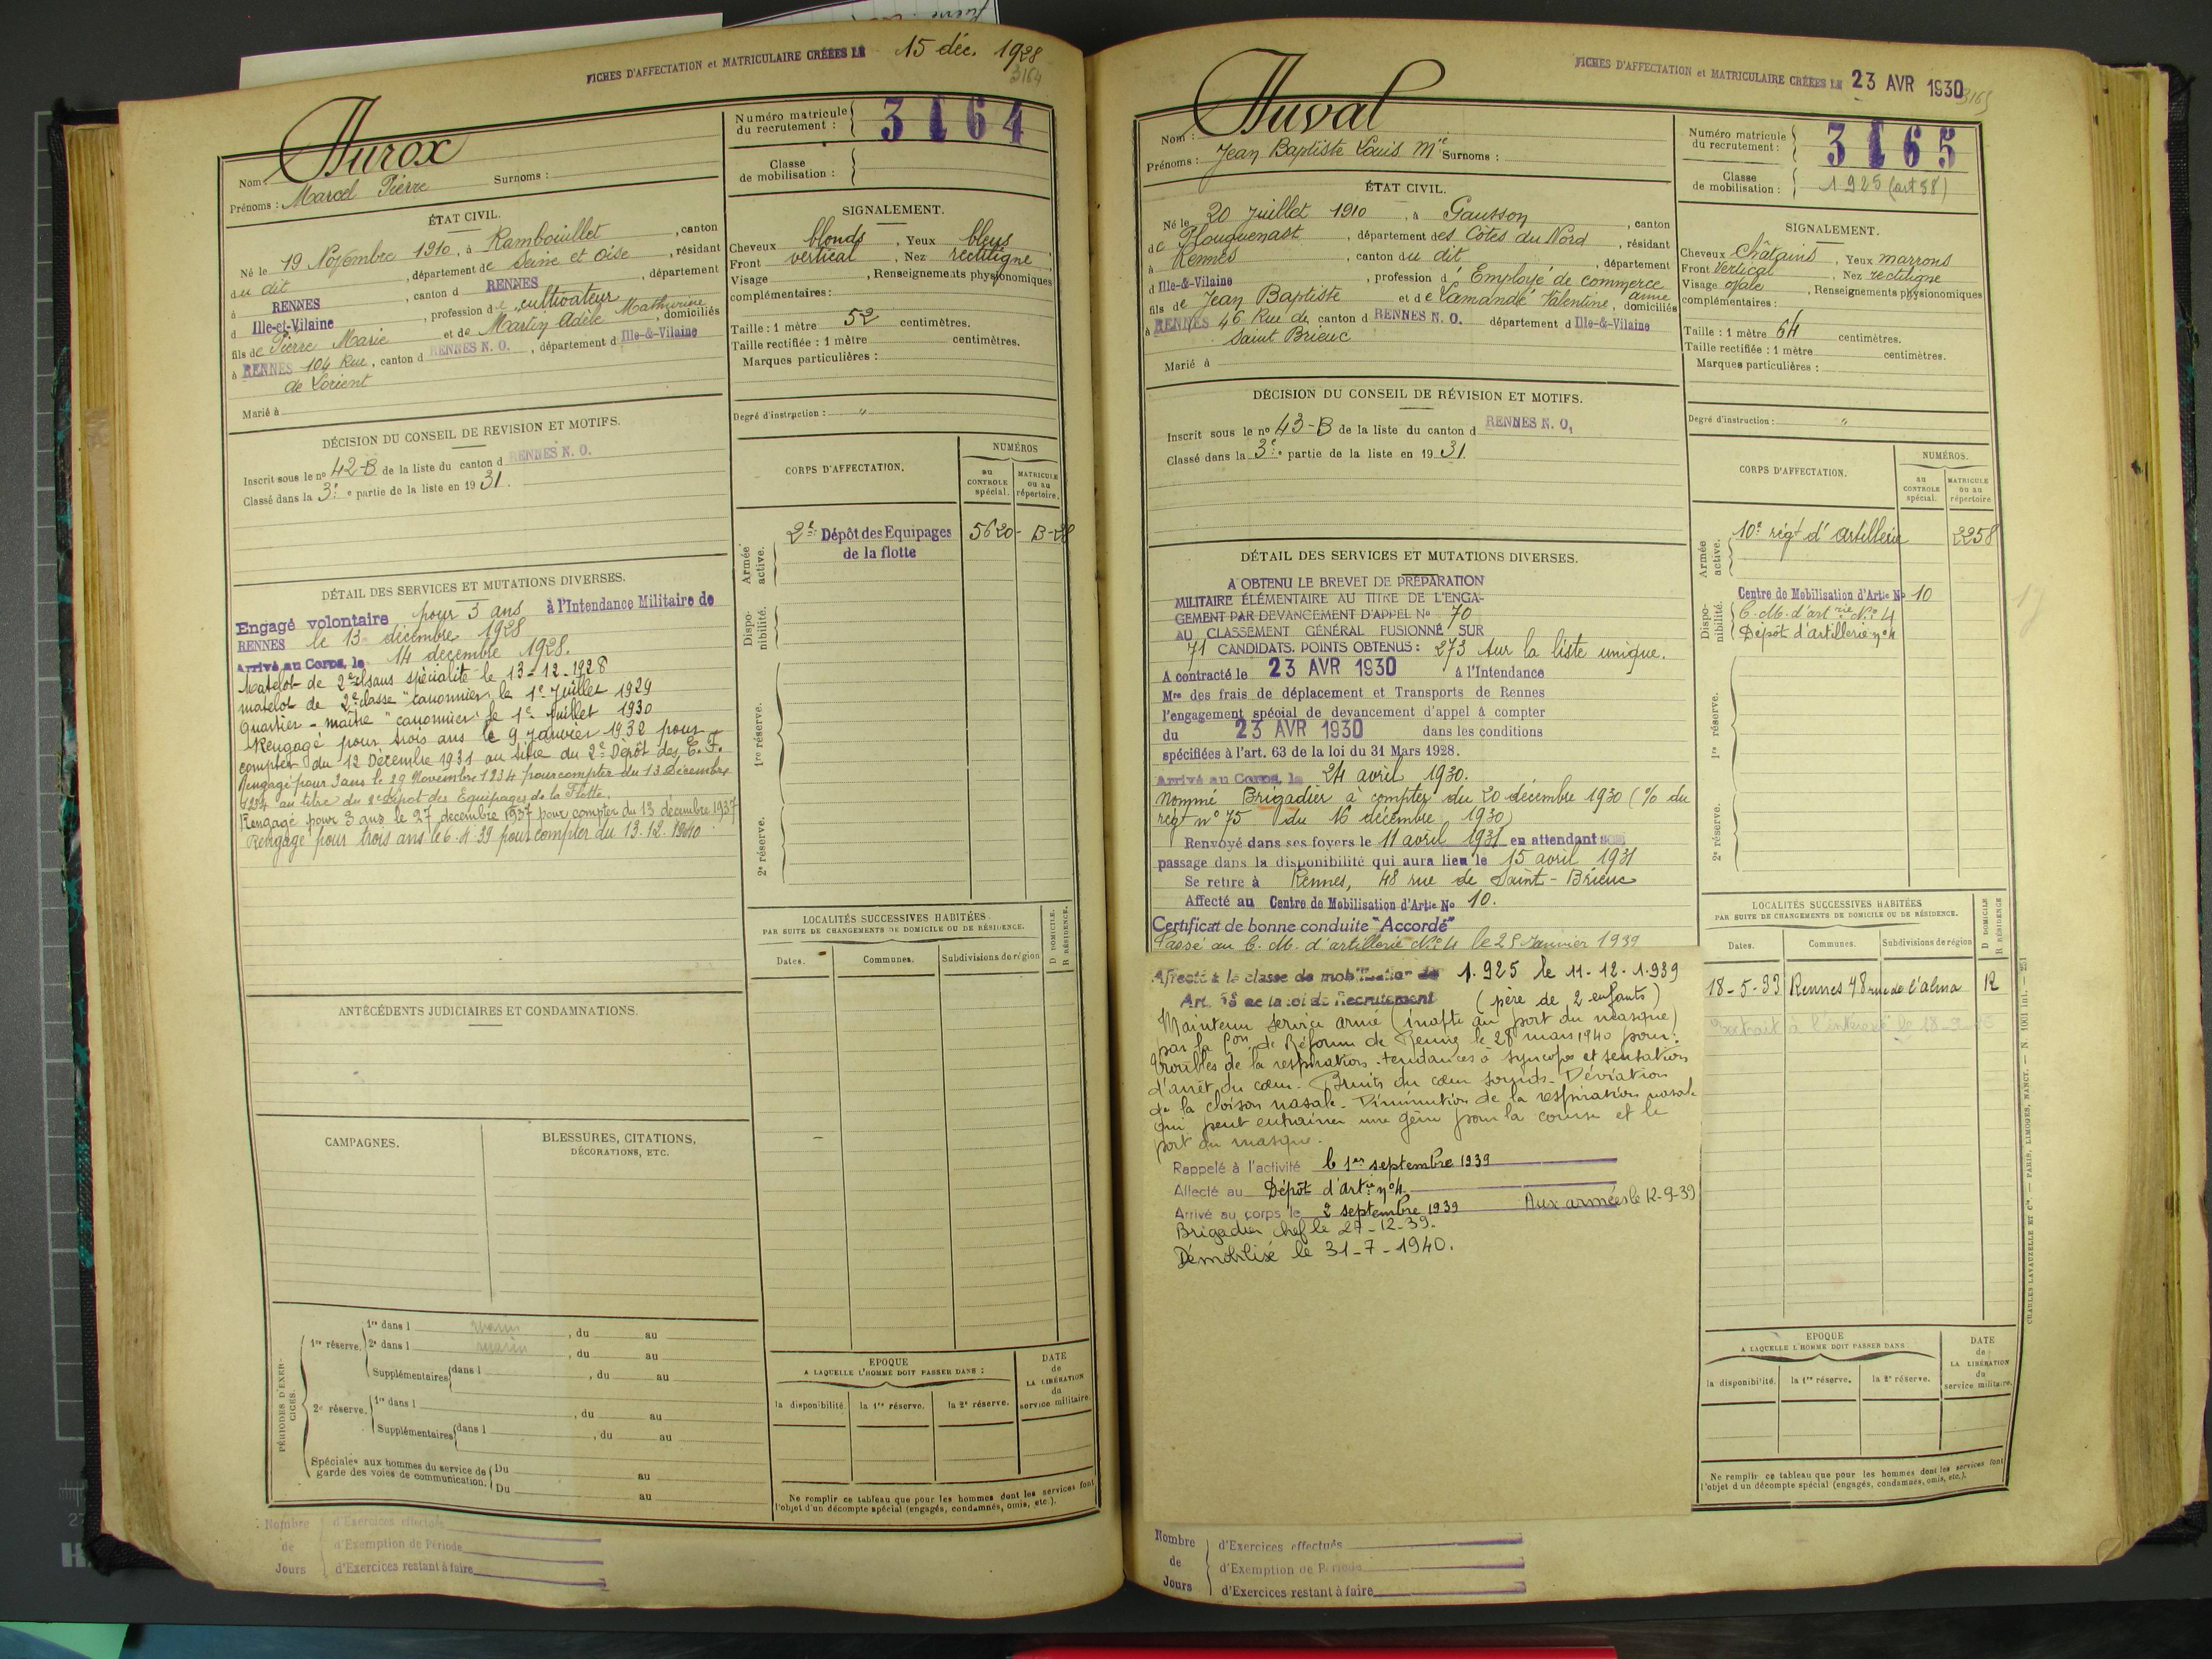 FICHES D'AFFECTATION et MATRICULAIRE CRÉÉES LE 15 déc. 1928
3164
Nom : Hurox
Prénoms : Marcel Pierre Surnoms :
Numéro matricule du recrutement : 3164
Classe de mobilisation :
ÉTAT CIVIL.
Né le 19 Novembre 1910, à Rambouillet, canton
du dit, département de Seine et Oise, résidant
à RENNES, canton d RENNES, département
d Ille-et-Vilaine, profession de cultivateur
fils de Pierre Marie et de Martin Adèle Mathurine, domiciliés
à RENNES 104 Rue, canton d RENNES N. O., département d Ille-&-Vilaine
de Lorient
Marié à
SIGNALEMENT.
Cheveux blonds, Yeux bleus
Front vertical, Nez rectiligne
Visage , Renseignements physionomiques
complémentaires :
Taille : 1 mètre 52 centimètres.
Taille rectifiée : 1 mètre centimètres.
Marques particulières :
Degré d'instruction : "
DÉCISION DU CONSEIL DE REVISION ET MOTIFS.
Inscrit sous le no 42-B de la liste du canton d RENNES N. O.
Classé dans la 3e partie de la liste en 1931.
CORPS D'AFFECTATION.
NUMÉROS
au CONTROLE spécial.
MATRICULE ou au répertoire.
Armée active.
2e Dépôt des Equipages 5620-B-28
de la flotte
Disponibilité.
1re réserve.
2e réserve.
DÉTAIL DES SERVICES ET MUTATIONS DIVERSES.
Engagé volontaire pour 3 ans à l'Intendance Militaire de
RENNES le 13 décembre 1928
Arrivé au Corps, le 14 décembre 1928.
Matelot de 2e cl sans spécialité le 13-12-1928
matelot de 2e classe "canonnier" le 1e Juillet 1929
Quartier-maître "canonnier" le 1e Juillet 1930
Rengagé pour trois ans le 9 Janvier 1932 pour
compter du 12 Décembre 1931 au titre du 2e Dépôt des E. F.
Rengagé pour 3 ans le 29 Novembre 1934 pour compter du 13 Décembre
1934 au titre du 2e Dépôt des Equipages de la Flotte.
Rengagé pour 3 ans le 27 decembre 1937 pour compter du 13 décembre 1937
Rengagé pour trois ans le 6.4.39 pour compter du 13.12.1940
LOCALITÉS SUCCESSIVES HABITÉES
PAR SUITE DE CHANGEMENTS DE DOMICILE OU DE RÉSIDENCE.
Dates. Communes. Subdivisions de région
D DOMICILE.
R RÉSIDENCE.
ANTÉCÉDENTS JUDICIAIRES ET CONDAMNATIONS.
CAMPAGNES.
BLESSURES, CITATIONS,
DÉCORATIONS, ETC.
PÉRIODES D'EXERCICES.
1re réserve. 1re dans l marin, du au
2e dans l marin, du au
Supplémentaires dans l , du au
2e réserve. 1re dans l , du au
Supplémentaires dans l , du au
Spéciales aux hommes du service de garde des voies de communication. Du au
Du au
EPOQUE
A LAQUELLE L'HOMME DOIT PASSER DANS :
la disponibilité. la 1re réserve. la 2e réserve.
DATE de LA LIBÉRATION du service militaire.
Ne remplir ce tableau que pour les hommes dont les services font
l'objet d'un décompte spécial (engagés, condamnés, omis, etc.).
Nombre de Jours
d'Exercices effectués
d'Exemption de Période
d'Exercices restant à faire
FICHES D'AFFECTATION et MATRICULAIRE CRÉÉES LE 23 AVR 1930
3165
Nom : Huval
Prénoms : Jean Baptiste Louis Mie Surnoms :
Numéro matricule du recrutement : 3165
Classe de mobilisation : 1925 (art 58)
ÉTAT CIVIL.
Né le 20 Juillet 1910, à Gausson, canton
de Plouguenast, département des Côtes du Nord, résidant
à Rennes, canton du dit, département
d Ille-&-Vilaine, profession d'Employé de commerce
fils de Jean Baptiste et de Lamandé Valentine Anne, domiciliés
à RENNES 46 Rue de, canton d RENNES N. O. département d Ille-&-Vilaine
Saint Brieuc
Marié à
SIGNALEMENT.
Cheveux Châtains, Yeux marrons
Front Vertical, Nez rectiligne
Visage ovale, Renseignements physionomiques
complémentaires :
Taille : 1 mètre 64 centimètres.
Taille rectifiée : 1 mètre centimètres.
Marques particulières :
Degré d'instruction : "
DÉCISION DU CONSEIL DE RÉVISION ET MOTIFS.
Inscrit sous le no 43-B de la liste du canton d RENNES N. O.
Classé dans la 3e partie de la liste en 1931.
CORPS D'AFFECTATION.
NUMÉROS.
au CONTROLE spécial.
MATRICULE ou au répertoire
Armée active.
10e régt d'artillerie 2258
Disponibilité.
Centre de Mobilisation d'Artie No 10
C. M. d'artrie No 4
Dépôt d'artillerie no 4
1re réserve.
2e réserve.
DÉTAIL DES SERVICES ET MUTATIONS DIVERSES.
A OBTENU LE BREVET DE PRÉPARATION
MILITAIRE ÉLÉMENTAIRE AU TITRE DE L'ENGA-
GEMENT PAR DEVANCEMENT D'APPEL No 70
AU CLASSEMENT GÉNÉRAL FUSIONNÉ SUR
71 CANDIDATS. POINTS OBTENUS : 273 sur la liste unique.
A contracté le 23 AVR 1930 à l'Intendance
Mre des frais de déplacement et Transports de Rennes
l'engagement spécial de devancement d'appel à compter
du 23 AVR 1930 dans les conditions
spécifiées à l'art. 63 de la loi du 31 Mars 1928.
Arrivé au Corps, le 24 avril 1930.
Nommé Brigadier à compter du 20 décembre 1930 (% du
régt no 75 du 16 décembre 1930)
Renvoyé dans ses foyers le 11 avril 1931 en attendant son
passage dans la disponibilité qui aura lieu le 15 avril 1931
Se retire à Rennes, 48 rue de Saint-Brieuc
Affecté au Centre de Mobilisation d'Artie No 10.
Certificat de bonne conduite "Accordé"
Passé au C. M. d'artillerie No 4 le 25 Janvier 1939
Affecté à la classe de mobilisation de 1.925 le 11-12-1.939
Art. 58 de la loi de Recrutement (père de 2 enfants)
Maintenu service armé (inapte au port du masque)
par la Con de Réforme de Rennes le 28 mars 1940 pour :
troubles de la respiration. tendances à syncope et sensation
d'arrêt du cœur. Bruits du cœur sourds. Déviation
de la cloison nasale. Diminution de la respiration nasale
qui peut entraîner une gêne pour la course et le
port du masque.
Rappelé à l'activité le 1er septembre 1939
Affecté au Dépôt d'artie no 4
Arrivé au corps le 2 septembre 1939 Aux armées le 12-9-39
Brigadier chef le 27-12-39.
Démobilisé le 31-7-1940.
LOCALITÉS SUCCESSIVES HABITÉES
PAR SUITE DE CHANGEMENTS DE DOMICILE OU DE RÉSIDENCE.
Dates. Communes. Subdivisions de région
D DOMICILE
R RÉSIDENCE
18-5-33 Rennes 48 rue de l'alma R
Extrait à l'intéressé le 18
EPOQUE
A LAQUELLE L'HOMME DOIT PASSER DANS
la disponibilité. la 1re réserve. la 2e réserve.
DATE de LA LIBÉRATION du service militaire.
Ne remplir ce tableau que pour les hommes dont les services font
l'objet d'un décompte spécial (engagés, condamnés, omis, etc.).
CHARLES-LAVAUZELLE ET Cie. — PARIS, LIMOGES, NANCY. — N. 1001 int. — 251
Nombre de Jours
d'Exercices effectués
d'Exemption de Période
d'Exercices restant à faire